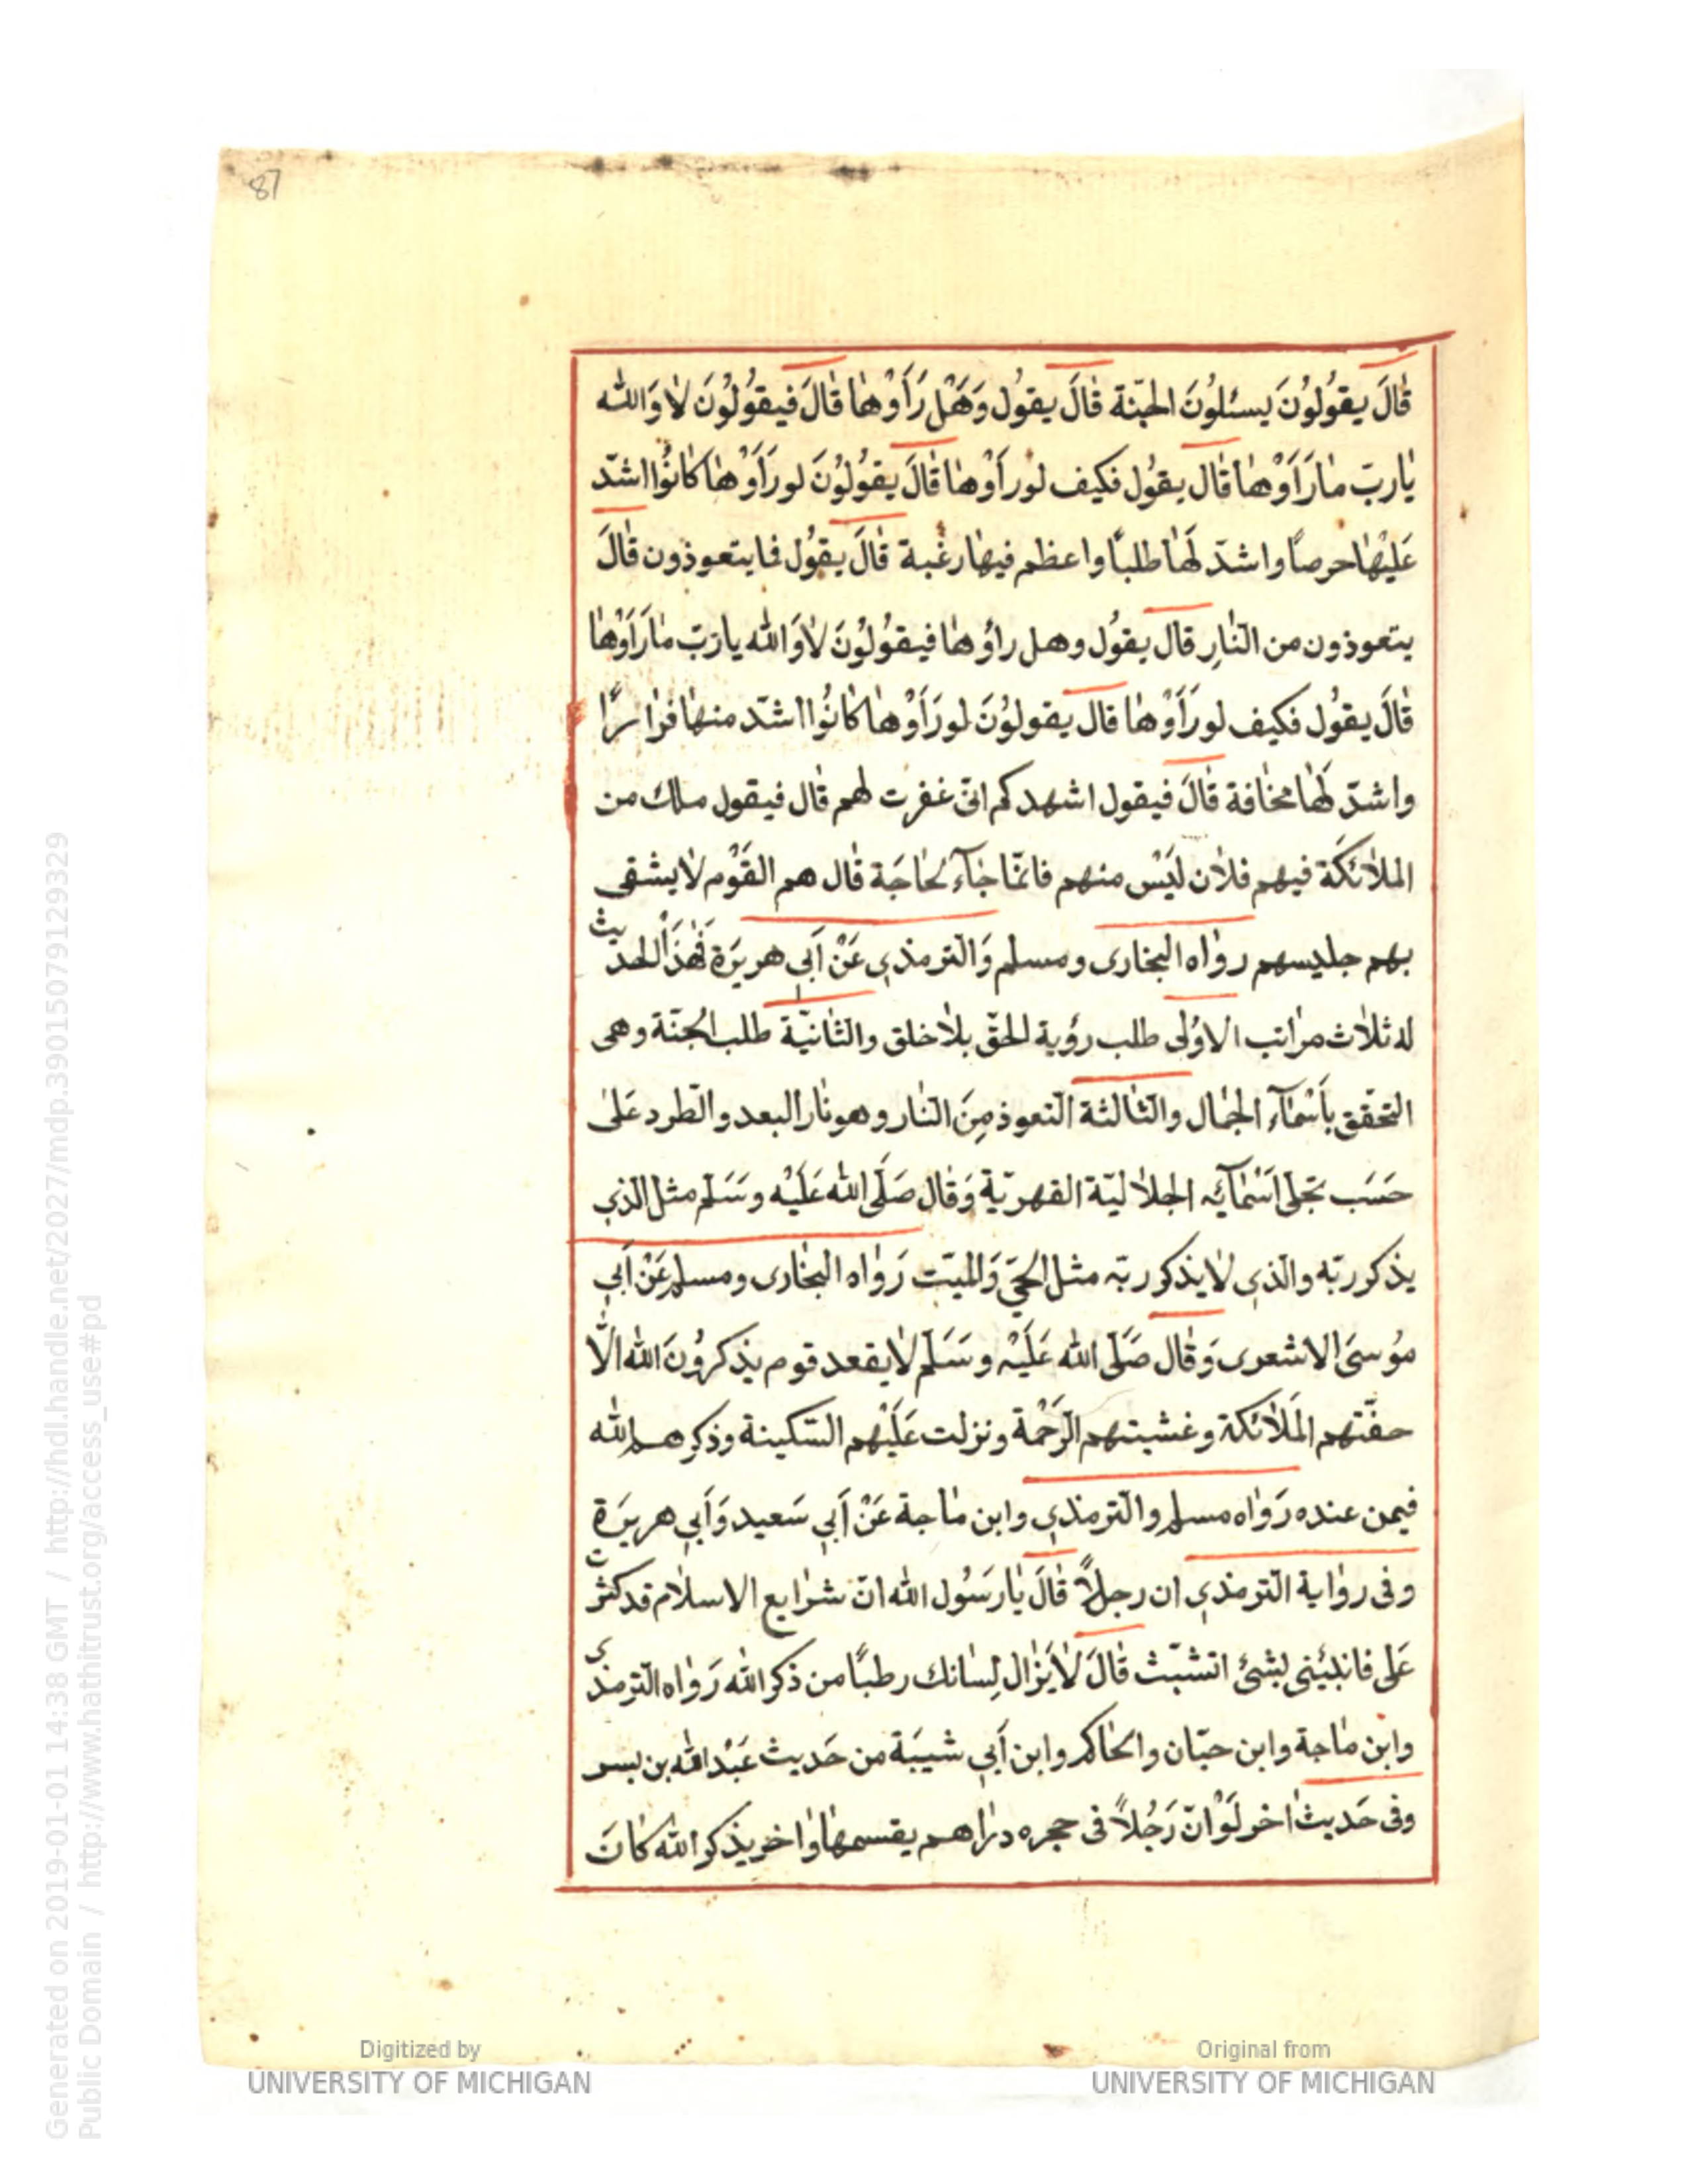 87
قٰالَ يقوُلوُنَ يسئلوُنَ الجنّة قٰالَ يقوُل وَهَلْ رَأَوْهٰا قٰالَ فيقوُلوُنَ لاٰ وَالله
يٰاربّ مٰارَأَوْهٰا قٰال يقوُل فكيف لورأَوْهٰا قٰالَ يقوُلوُنَ لورَأَوْهٰا كٰانوُا اشدّ
عَليْهٰا حرصًا واشدّ لَهٰا طلبًا واعظم فيهٰا رغبة قٰالَ يقوُل فمايتعوذون قٰالَ
يتعوذون من النّارِ قٰال يقوُل وهل راوُهٰا فيقوُلوُنَ لاٰ وَالله ياربّ مٰارَأَوْهٰا
قٰالَ يقوُل فكيف لورَأَوْهٰا قٰال يقولوُنَ لورَأَوْهٰا كٰانوُا اشدّ منهٰا فرٰارًا
واشدّ لَهٰا مخٰافة قٰالَ فيقول اشهدكم انّى غفرت لهم قٰال فيقول ملك من
الملاٰئكَة فيهم فلاٰن لَيْسَ منهم فانمّا جٰآءَ لحٰاجَة قٰال هم القَوْم لاٰيشقى
بهم جليسهم روٰاه البخارى ومسلم وَالترمذي عَنْ أَبي هريرَة فَهٰذَا الحديث
له ثلاٰث مرٰاتب الاوُلى طلب رؤية الحقّ بلاٰ خلق والثٰانيّة طلب الجنّة وهى
التحقّق بأَسْمٰآءِ الجمٰال والثٰالثة التعوذ مِنَ النّار وهونٰار البعد والطرد عَلىٰ
حَسَب تجلى اَسْمٰآئِه الجلاٰليّة القهريّة وَقٰال صَلَّى الله عَلَيْه وسَلم مثل الّذي
يذكر ربّه والّذي لاٰيذكر ربّه مثل الحيّ وَالميّت رَوٰاه البخٰارى ومسلم عَنْ أَبي
موُسىَ الاشعرى وَقٰال صَلَّى الله عَلَيْه وسَلم لاٰيقعد قوم يذكروُنَ الله الّا
حفّتهم المَلاٰئكة وغشيتهم الرَحْمة ونزلت عَلَيْهم السّكينة وذكرهم الله
فيمن عنده رَوٰاه مسلم والترمذي وابن مٰاجة عَنْ أَبي سَعيد وَأَبي هريرَة
وفى روٰاية الترمذي ان رجلاً قٰالَ يٰارَسُول الله انّ شرٰايع الاسلاٰم قدكثرت
عَلى فانبئينى بشئ اتشبّث قٰالَ لاٰيَزٰال لِسٰانك رطبًا من ذكر الله رَوٰاه الترمذى
وابن مٰاجة وابن حبّان والحٰاكم وابن أَبي شيبَة من حَديث عَبْدالله بن بسر
وفى حَديث اٰخر لَوْ انّ رَجُلاً فى حجره درٰاهم يقسمهٰا وٰاخر يذكر الله كٰانَ
Digitized by
UNIVERSITY OF MICHIGAN
Original from
UNIVERSITY OF MICHIGAN
Generated on 2019-01-01 14:38 GMT / http://hdl.handle.net/2027/mdp.39015079129329
Public Domain / http://www.hathitrust.org/access_use#pd